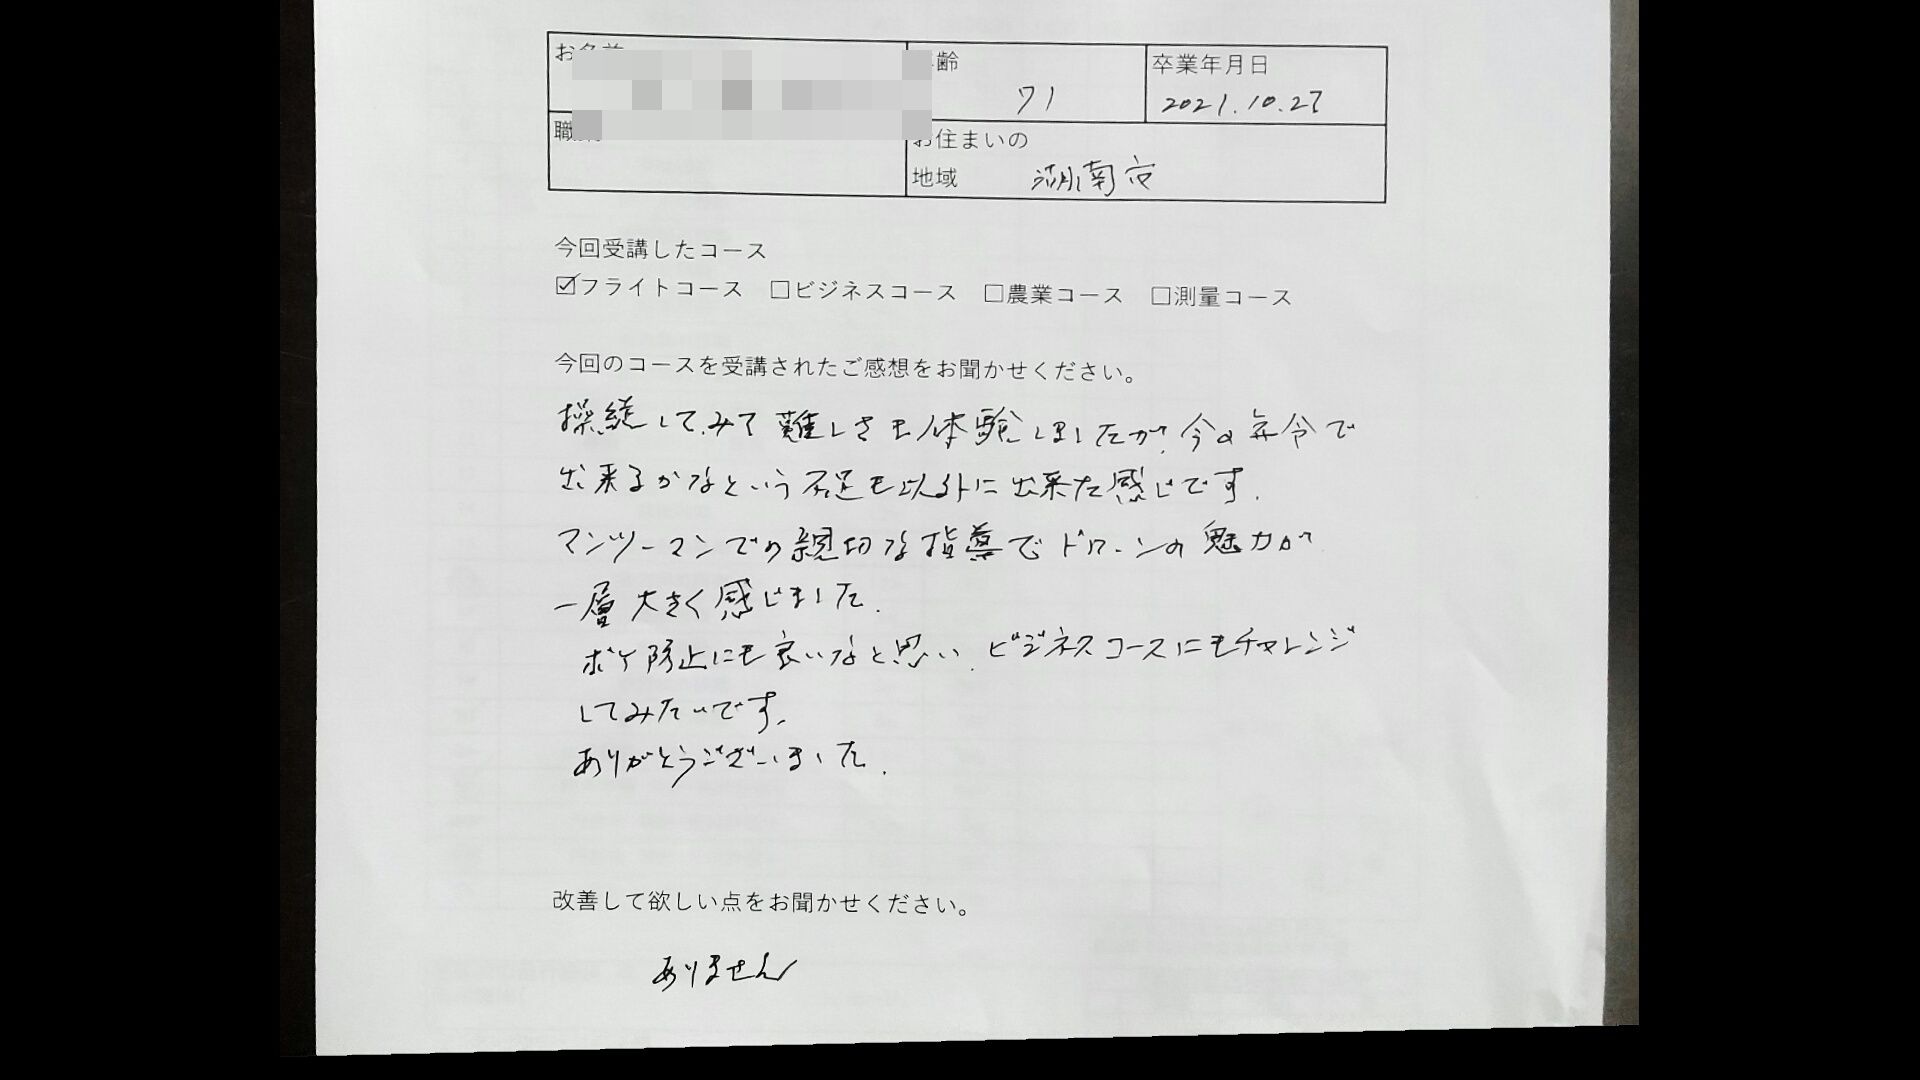 お名前
年齢
71
卒業年月日
2021.10.27
職業
お住まいの
地域 湖南市
今回受講したコース
☑フライトコース □ビジネスコース □農業コース □測量コース
今回のコースを受講されたご感想をお聞かせください。
操縦してみて難しさも体験しましたが、今の年令で
出来るかなという不足も以外に出来た感じです.
マンツーマンでの親切な指導でドローンの魅力が
一層大きく感じました.
ボケ防止にも良いなと思い、ビジネスコースにもチャレンジ
してみたいです.
ありがとうございました.
改善して欲しい点をお聞かせください。
ありません